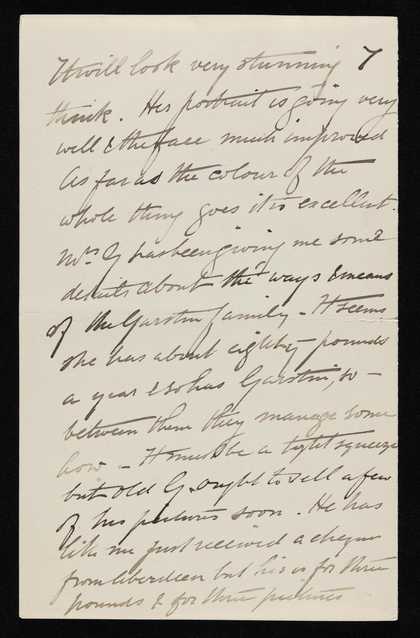 It will look very stunning I
think. Her portrait is going very
well & the face much improved
As far as the colour of the
whole thing goes it is excellent.
Mrs G has been giving me some
details about the ways & means
of the Garstin family - It seems
she has about eighty pounds
a year & so has Garstin, so -
between them they manage some
how - It must be a tight squeeze
but old G. ought to sell a few
of his pictures soon. He has
like me just received a cheque
from Aberdeen but his is for three
pounds & for three pictures